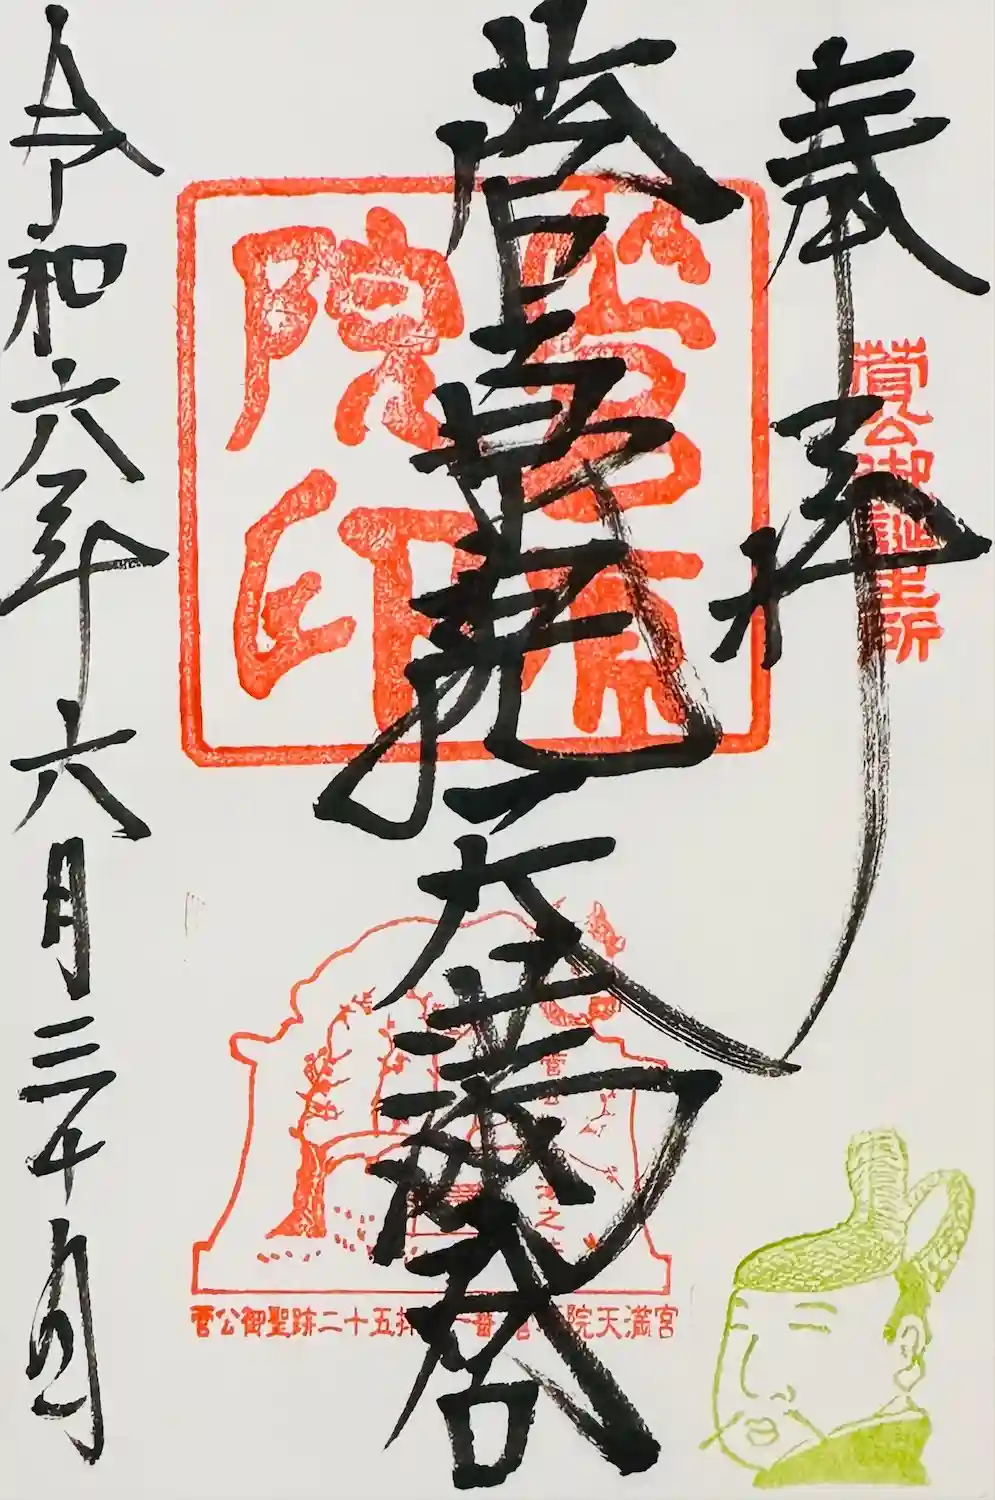 奉拝
菅公御誕生所
菅原院天満宮
菅原院印
令和六年六月三十日
菅公御聖跡二十五拝 一番 院天満宮